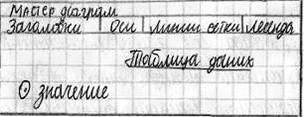 Мастер диаграм
Заголовки | Оси | Линии сетки | Легенда
Таблица даних
⊙ значение